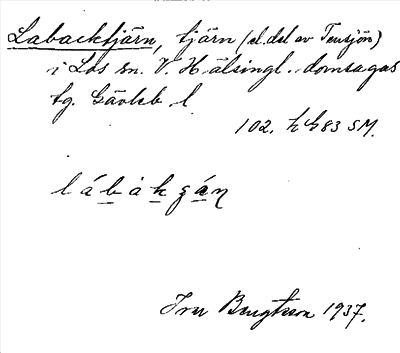 Labacktjärn, tjärn (el. del av Tensjön)
i Los sn. V. Hälsingl. domsagas
tg. Gävleb l.
102. h G83 SM.
l á b à k g ä n
Bengtsson 1937.